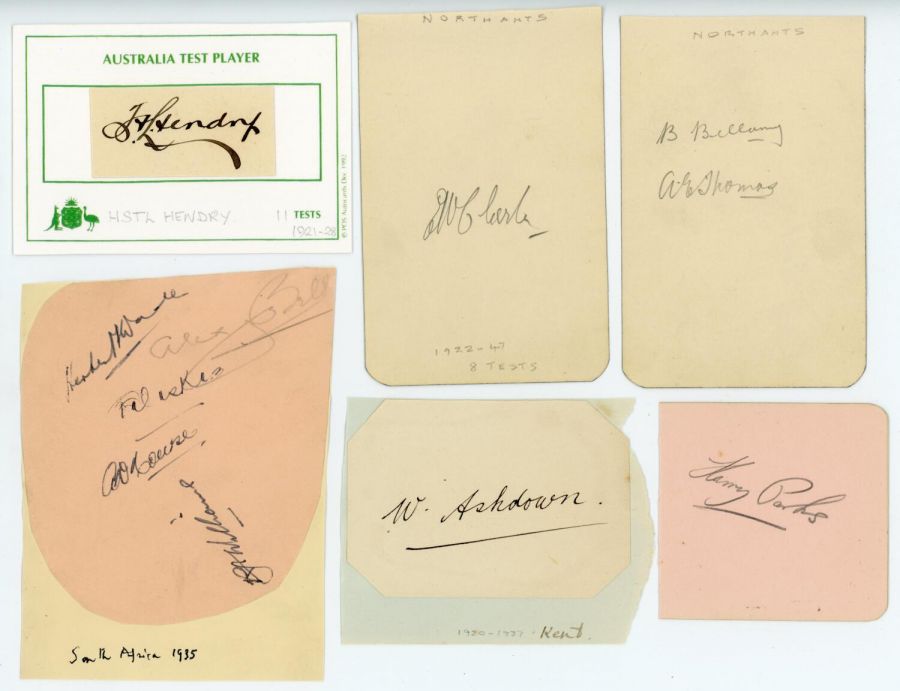 AUSTRALIA TEST PLAYER
HSTL Hendry
HSTL HENDRY. 11 TESTS
1921-28
© POS Autocards Dec 1992
NORTHANTS
EW Clark
1922-47
8 TESTS
NORTHANTS
B Bellamy
A E Thomas
Herbert F Wade
Alex Bell
A D Nourse
South Africa 1935
W. Ashdown.
1920-1937. Kent.
Harry Parks